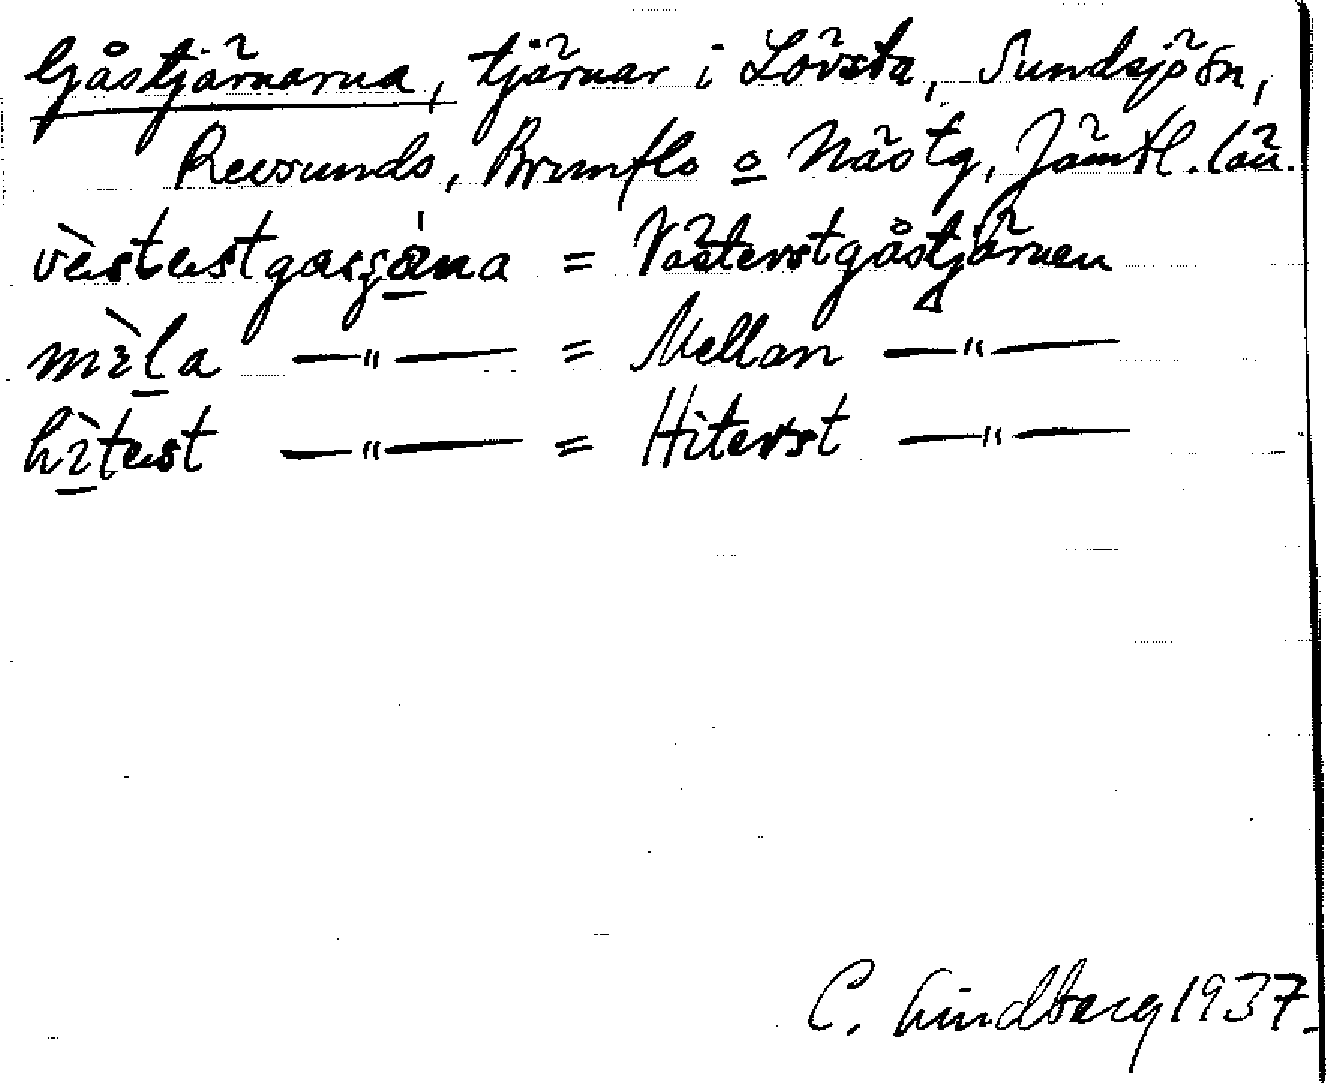 Gåstjärnarna, tjärnar i Lövsta, Sundsjö sn,
Revsunds, Brunflo o Näs tg, Jämtl. län.
vèstestgasʂána = Västerstgåstjärnen
mèla —"— = Mellan —"—
hìtest —"— = Hiterst —"—
C. Lindberg 1937.